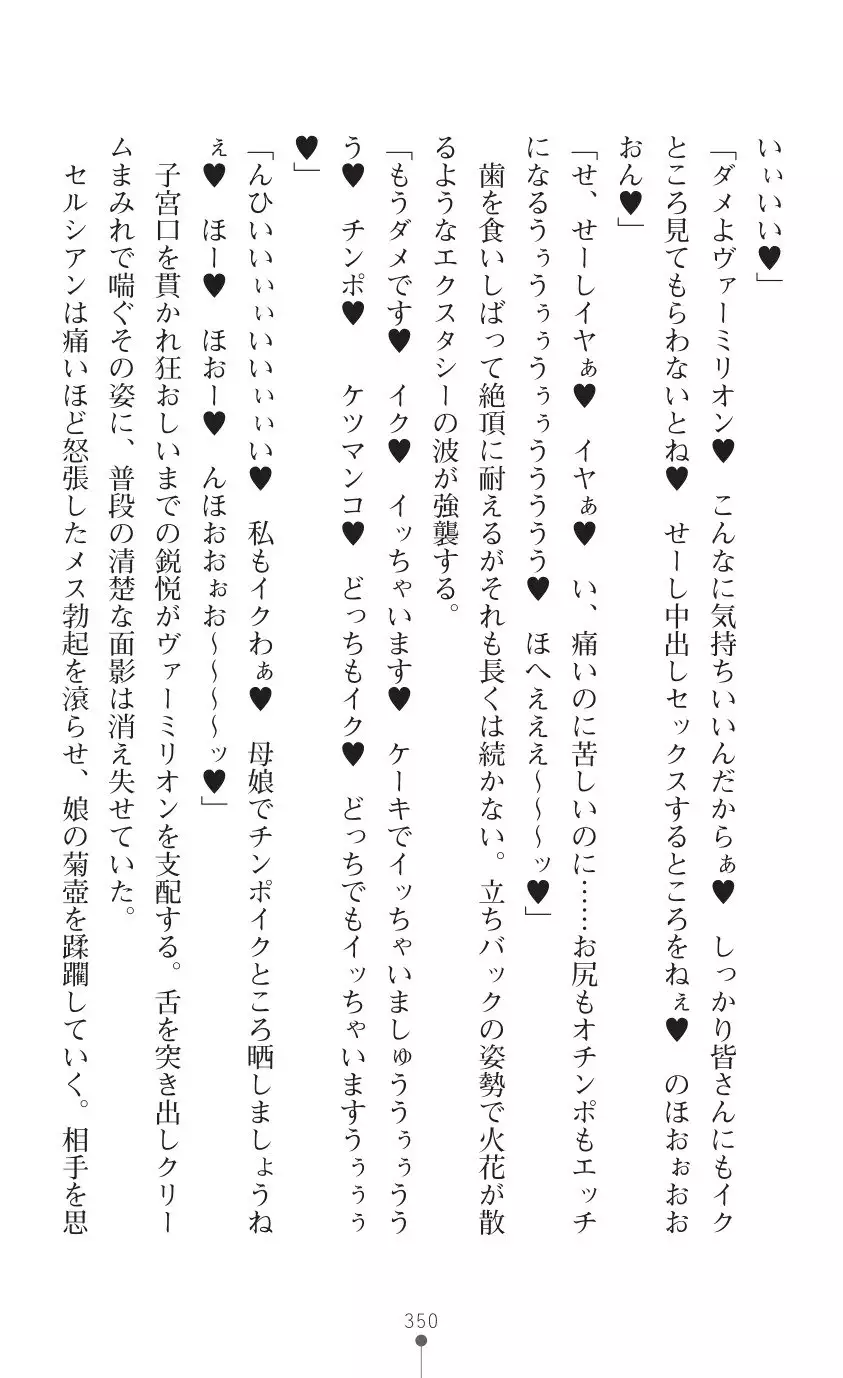 いぃいい♥」
「ダメよヴァーミリオン♥　こんなに気持ちいいんだからぁ♥　しっかり皆さんにもイク
ところ見てもらわないとね♥　せーし中出しセックスするところをねぇ♥　のほおぉおお
おん♥」
「せ、せーしイヤぁ♥　イヤぁ♥　い、痛いのに苦しいのに……お尻もオチンポもエッチ
になるうぅうぅぅうぅぅうううう♥　ほへえええ～～～ッ♥」
　歯を食いしばって絶頂に耐えるがそれも長くは続かない。立ちバックの姿勢で火花が散
るようなエクスタシーの波が強襲する。
「もうダメです♥　イク♥　イッちゃいます♥　ケーキでイッちゃいましゅううぅぅうう
う♥　チンポ♥　　ケツマンコ♥　どっちもイク♥　どっちでもイッちゃいますうぅぅぅ
♥」
「んひいいぃぃいいぃぃい♥　私もイクわぁ♥　母娘でチンポイクところ晒しましょうね
ぇ♥　ほー♥　ほおー♥　んほおおぉお～～～～ッ♥」
　子宮口を貫かれ狂おしいまでの鋭悦がヴァーミリオンを支配する。舌を突き出しクリー
ムまみれで喘ぐその姿に、普段の清楚な面影は消え失せていた。
　セルシアンは痛いほど怒張したメス勃起を滾らせ、娘の菊壺を蹂躙していく。相手を思
350